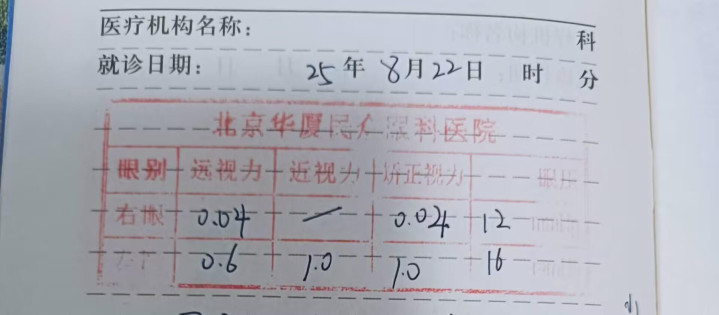 医疗机构名称: 科
就诊日期: 25年 8月22日 时 分
北京华厦民众眼科医院
眼别 远视力 近视力 矫正视力 眼压
右眼 0.04 / 0.04 12
0.6 1.0 1.0 16